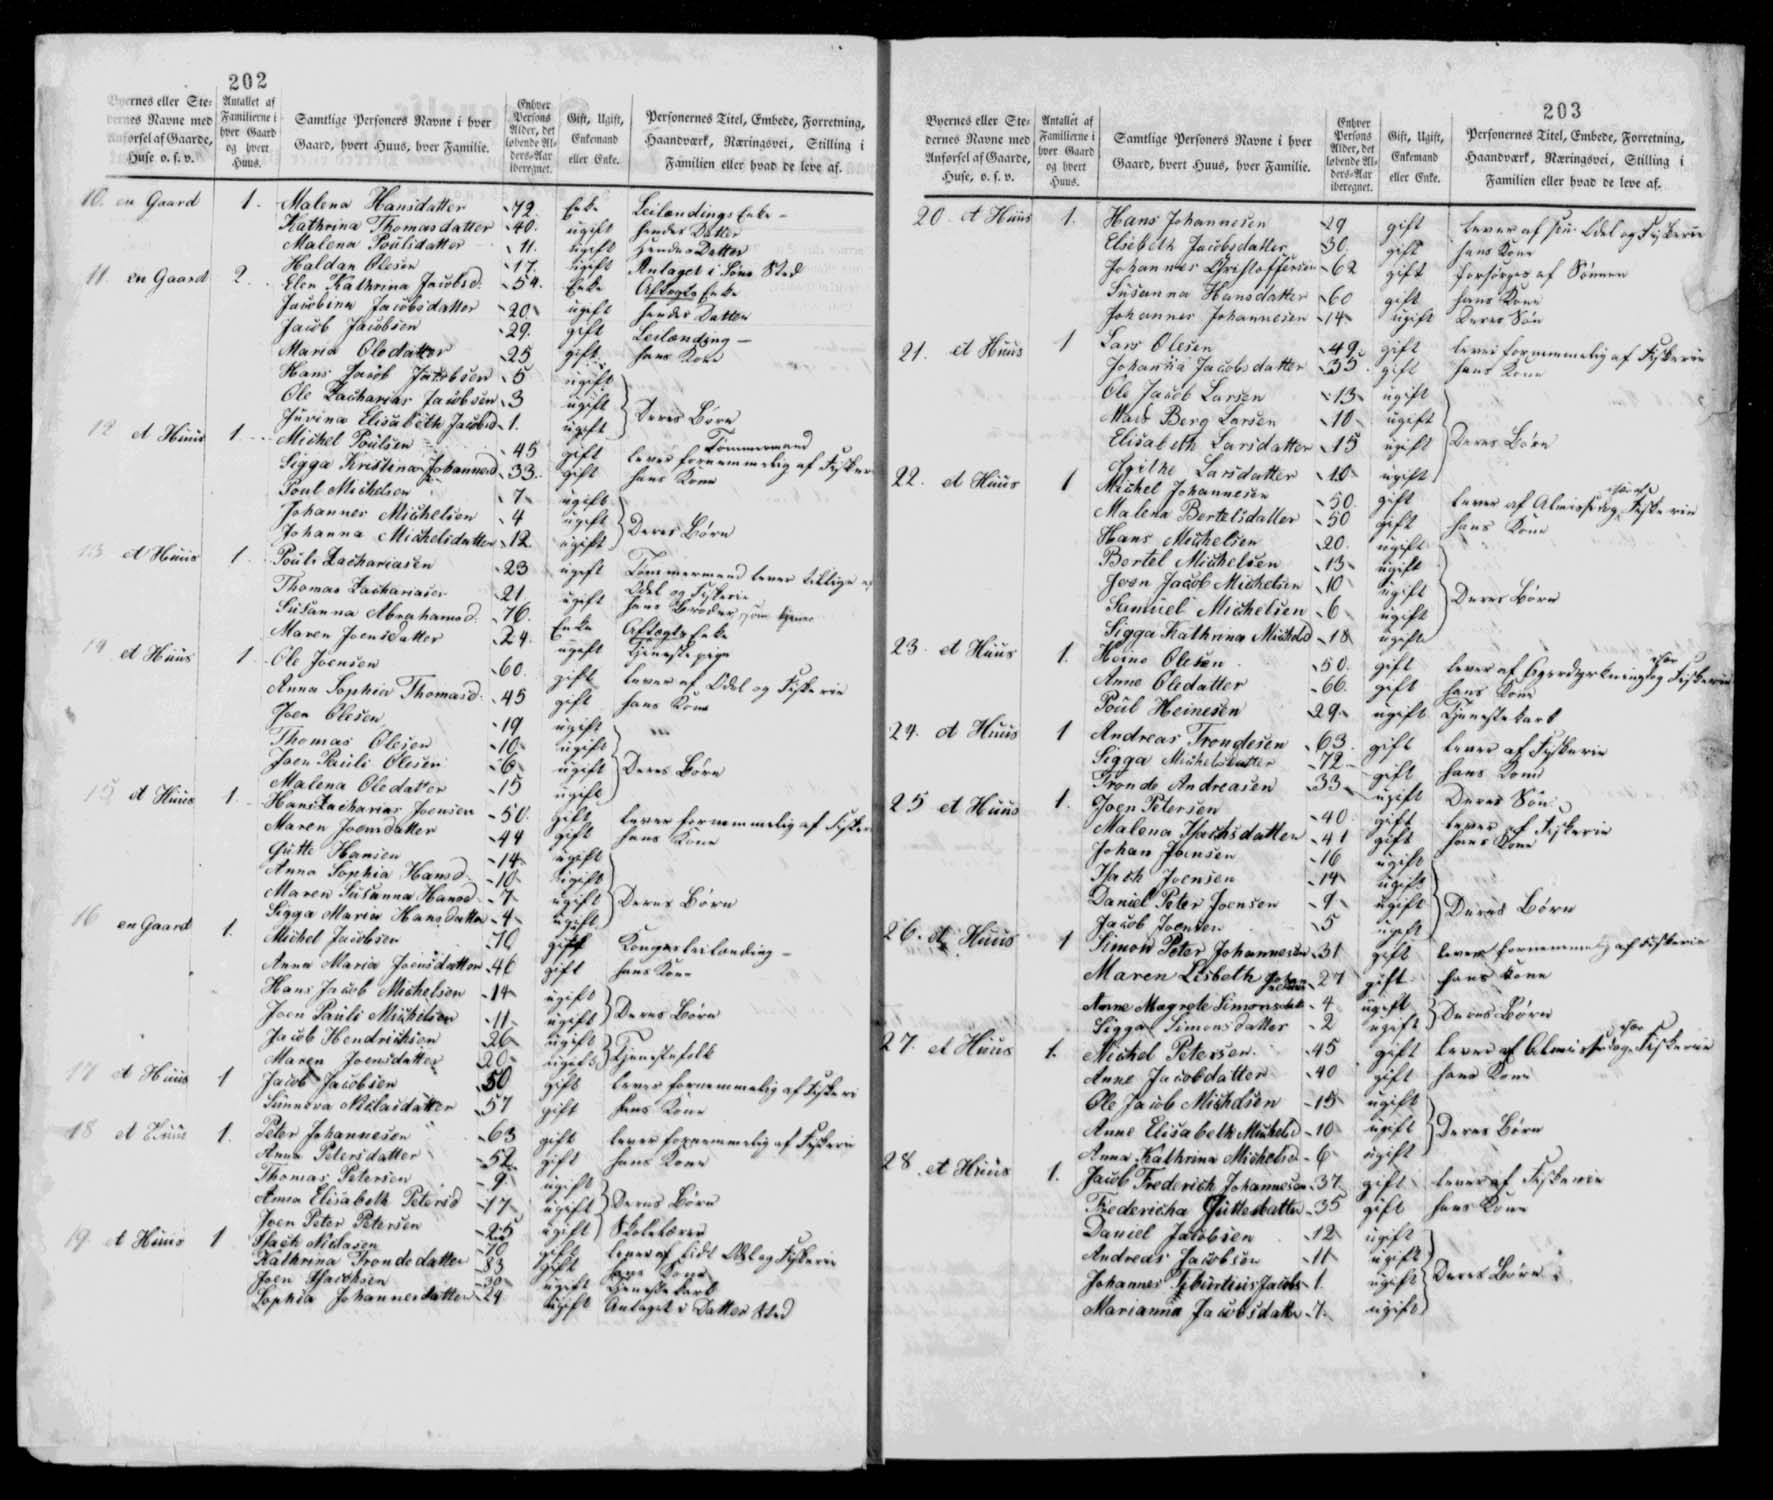 202
Byernes eller Ste- dernes Navne med Anførsel af Gaarde, Huse o. s. v.
Antallet af Familierne i hver Gaard og hvert Huus.
Samtlige Personers Navne i hver Gaard, hvert Huus, hver Familie.
Enhver Persons Alder, det løbende Al- ders-Aar iberegnet.
Gift, Ugift, Enkemand eller Enke.
Personernes Titel, Embede, Forretning, Haandværk, Næringsvei, Stilling i Familien eller hvad de leve af.
10. en Gaard 1. Malena Hansdatter 72 Enke Leilændings Enke
Kathrina Thomasdatter 40. ugift hendes Datter
Malena Poulsdatter 11. ugift hendes Datter
Haldan Olesen 17. ugift Antaget i Søns Sted
11. en Gaard 2. Elen Kathrina Jacobsd. 54. Enke Aftægts Enke
Jacobina Jacobsdatter 20 ugift hendes Datter
Jacob Jacobsen 29. gift Leilænding
Maria Oledatter 25 gift hans Kone
Hans Jacob Jacobsen 5 ugift
Ole Zacharias Jacobsen 3 ugift Deres Børn
Jurina Elisabeth Jacobsd 1. ugift
12 et Huus 1. Michel Poulsen 45 gift Tømmermand lever fornemmelig af Fisker
Sigga Kristina Johannesd 33. gift hans Kone
Poul Michelsen 7 ugift
Johannes Michelsen 4 ugift Deres Børn
Johanna Michelsdatter 12 ugift
13 et Huus 1. Pouli Zachariasen 23 ugift Tømmermand lever tillige af Odel og Fiskerie
Thomas Zachariasen 21 ugift hans Broder som tjener
Susanna Abrahamsd. 76. Enke Aftægts Enke
Maren Joensdatter 24. ugift Tjenestepige
14 et Huus 1. Ole Joensen 60. gift lever af Odel og Fiskerie
Anna Sophia Thomasd. 45 gift hans Kone
Joen Olesen 19 ugift
Thomas Olesen 10 ugift
Joen Pauli Olesen 6 ugift Deres Børn
Malena Oledatter 15 ugift
15 et Huus 1. Hans Zacharias Joensen 50. gift lever fornemmelig af Fisker
Maren Joensdatter 44 gift hans Kone
Gutte Hansen 14 ugift
Anna Sophia Hansd. 10 ugift
Maren Susanna Hansd. 7 ugift Deres Børn
Sigga Maria Hansdatter 4 ugift
16 en Gaard 1. Michel Jacobsen 70 gift Kongens Leilænding
Anna Maria Joensdatter 46 gift hans Kone
Hans Jacob Michelsen 14 ugift
Joen Pauli Michelsen 11 ugift Deres Børn
Jacob Hendrichsen 26 ugift
Maren Joensdatter 20 ugift Tjenestefolk
17 et Huus 1 Jacob Jacobsen 50 gift lever fornemmelig af Fiskeri
Sunneva Niclasdatter 57 gift hans Kone
18 et Huus 1. Peter Johannesen 63 gift lever fornemmelig af Fiskeri
Anna Petersdatter 52 gift hans Kone
Thomas Petersen 9 ugift
Anna Elisabeth Petersd 17 ugift Deres Børn
Joen Peter Petersen 25 ugift Skolelærer
19. et Huus 1 Isach Niclasen 70 gift lever af lidt Odel og Fiskerie
Kathrina Trondedatter 83 gift hans Kone
Joen Isachsen 30 ugift Tjenestekarl
Sophia Johannesdatter 24 ugift Antaget i Datters Sted
203
Byernes eller Ste- dernes Navne med Anførsel af Gaarde, Huse, o. s. v.
Antallet af Familierne i hver Gaard og hvert Huus.
Samtlige Personers Navne i hver Gaard, hvert Huus, hver Familie.
Enhver Persons Alder, det løbende Al- ders-Aar iberegnet.
Gift, Ugift, Enkemand eller Enke.
Personernes Titel, Embede, Forretning, Haandværk, Næringsvei, Stilling i Familien eller hvad de leve af.
20. et Huus 1. Hans Johannesen 29 gift lever af sin Odel og Fiskerie
Elsebeth Jacobsdatter 30. gift hans Kone
Johannes Christoffersen 62 gift forsørges af Sønnen
Susanna Hansdatter 60 gift hans Kone
Johannes Johannesen 14 ugift Deres Søn
21. et Huus 1 Lars Olesen 49. gift lever fornemmelig af Fiskerie
Johanna Jacobsdatter 35 gift hans Kone
Ole Jacob Larsen 13 ugift
Mads Berg Larsen 10 ugift
Elisabeth Larsdatter 15 ugift Deres Børn
Agithe Larsdatter 10 ugift
22. et Huus 1 Michel Johannesen 50. gift lever af Almisse og Fiskerie
Malena Bertelsdatter 50 gift hans Kone
Hans Michelsen 20. ugift
Bertel Michelsen 13 ugift
Joen Jacob Michelsen 10 ugift Deres Børn
Samuel Michelsen 6 ugift
Sigga Kathrina Michelsd 18 ugift
23. et Huus 1. Heine Olesen 50. gift lever af Agerdyrkning og Fiskerie
Anne Oledatter 66. gift hans Kone
Poul Heinesen 29. ugift Tjenestekarl
24. et Huus 1 Andreas Trondesen 63. gift lever af Fiskerie
Sigga Michelsdatter 72 gift hans Kone
Tronde Andreasen 33 ugift Deres Søn
25 et Huus 1. Joen Petersen 40 gift lever af Fiskerie
Malena Isachsdatter 41 gift hans Kone
Johan Joensen 16 ugift
Isach Joensen 14 ugift
Daniel Peter Joensen 9 ugift Deres Børn
Jacob Joensen 5 ugift
26. et Huus 1 Simon Peter Johannesen 31 gift lever fornemmelig af Fiskerie
Maren Lisbeth 27 gift hans Kone
Anne Magrete Simonsdatt 4 ugift Deres Børn
Sigga Simonsdatter 2 ugift
27. et Huus 1. Michel Petersen 45 gift lever af Almisse og Fiskerie
Anne Jacobdatter 40 gift hans Kone
Ole Jacob Michelsen 15 ugift
Anne Elisabeth Michelsd 10 ugift Deres Børn
Anna Kathrina Michelsd 6 ugift
28. et Huus 1. Jacob Frederich Johannesen 37 gift lever af Fiskerie
Fredericha Guttesdatter 35 gift hans Kone
Daniel Jacobsen 12 ugift
Andreas Jacobsen 11 ugift
Johannes Tiburtius Jacobs 1. ugift Deres Børn
Marianna Jacobsdatter 7. ugift